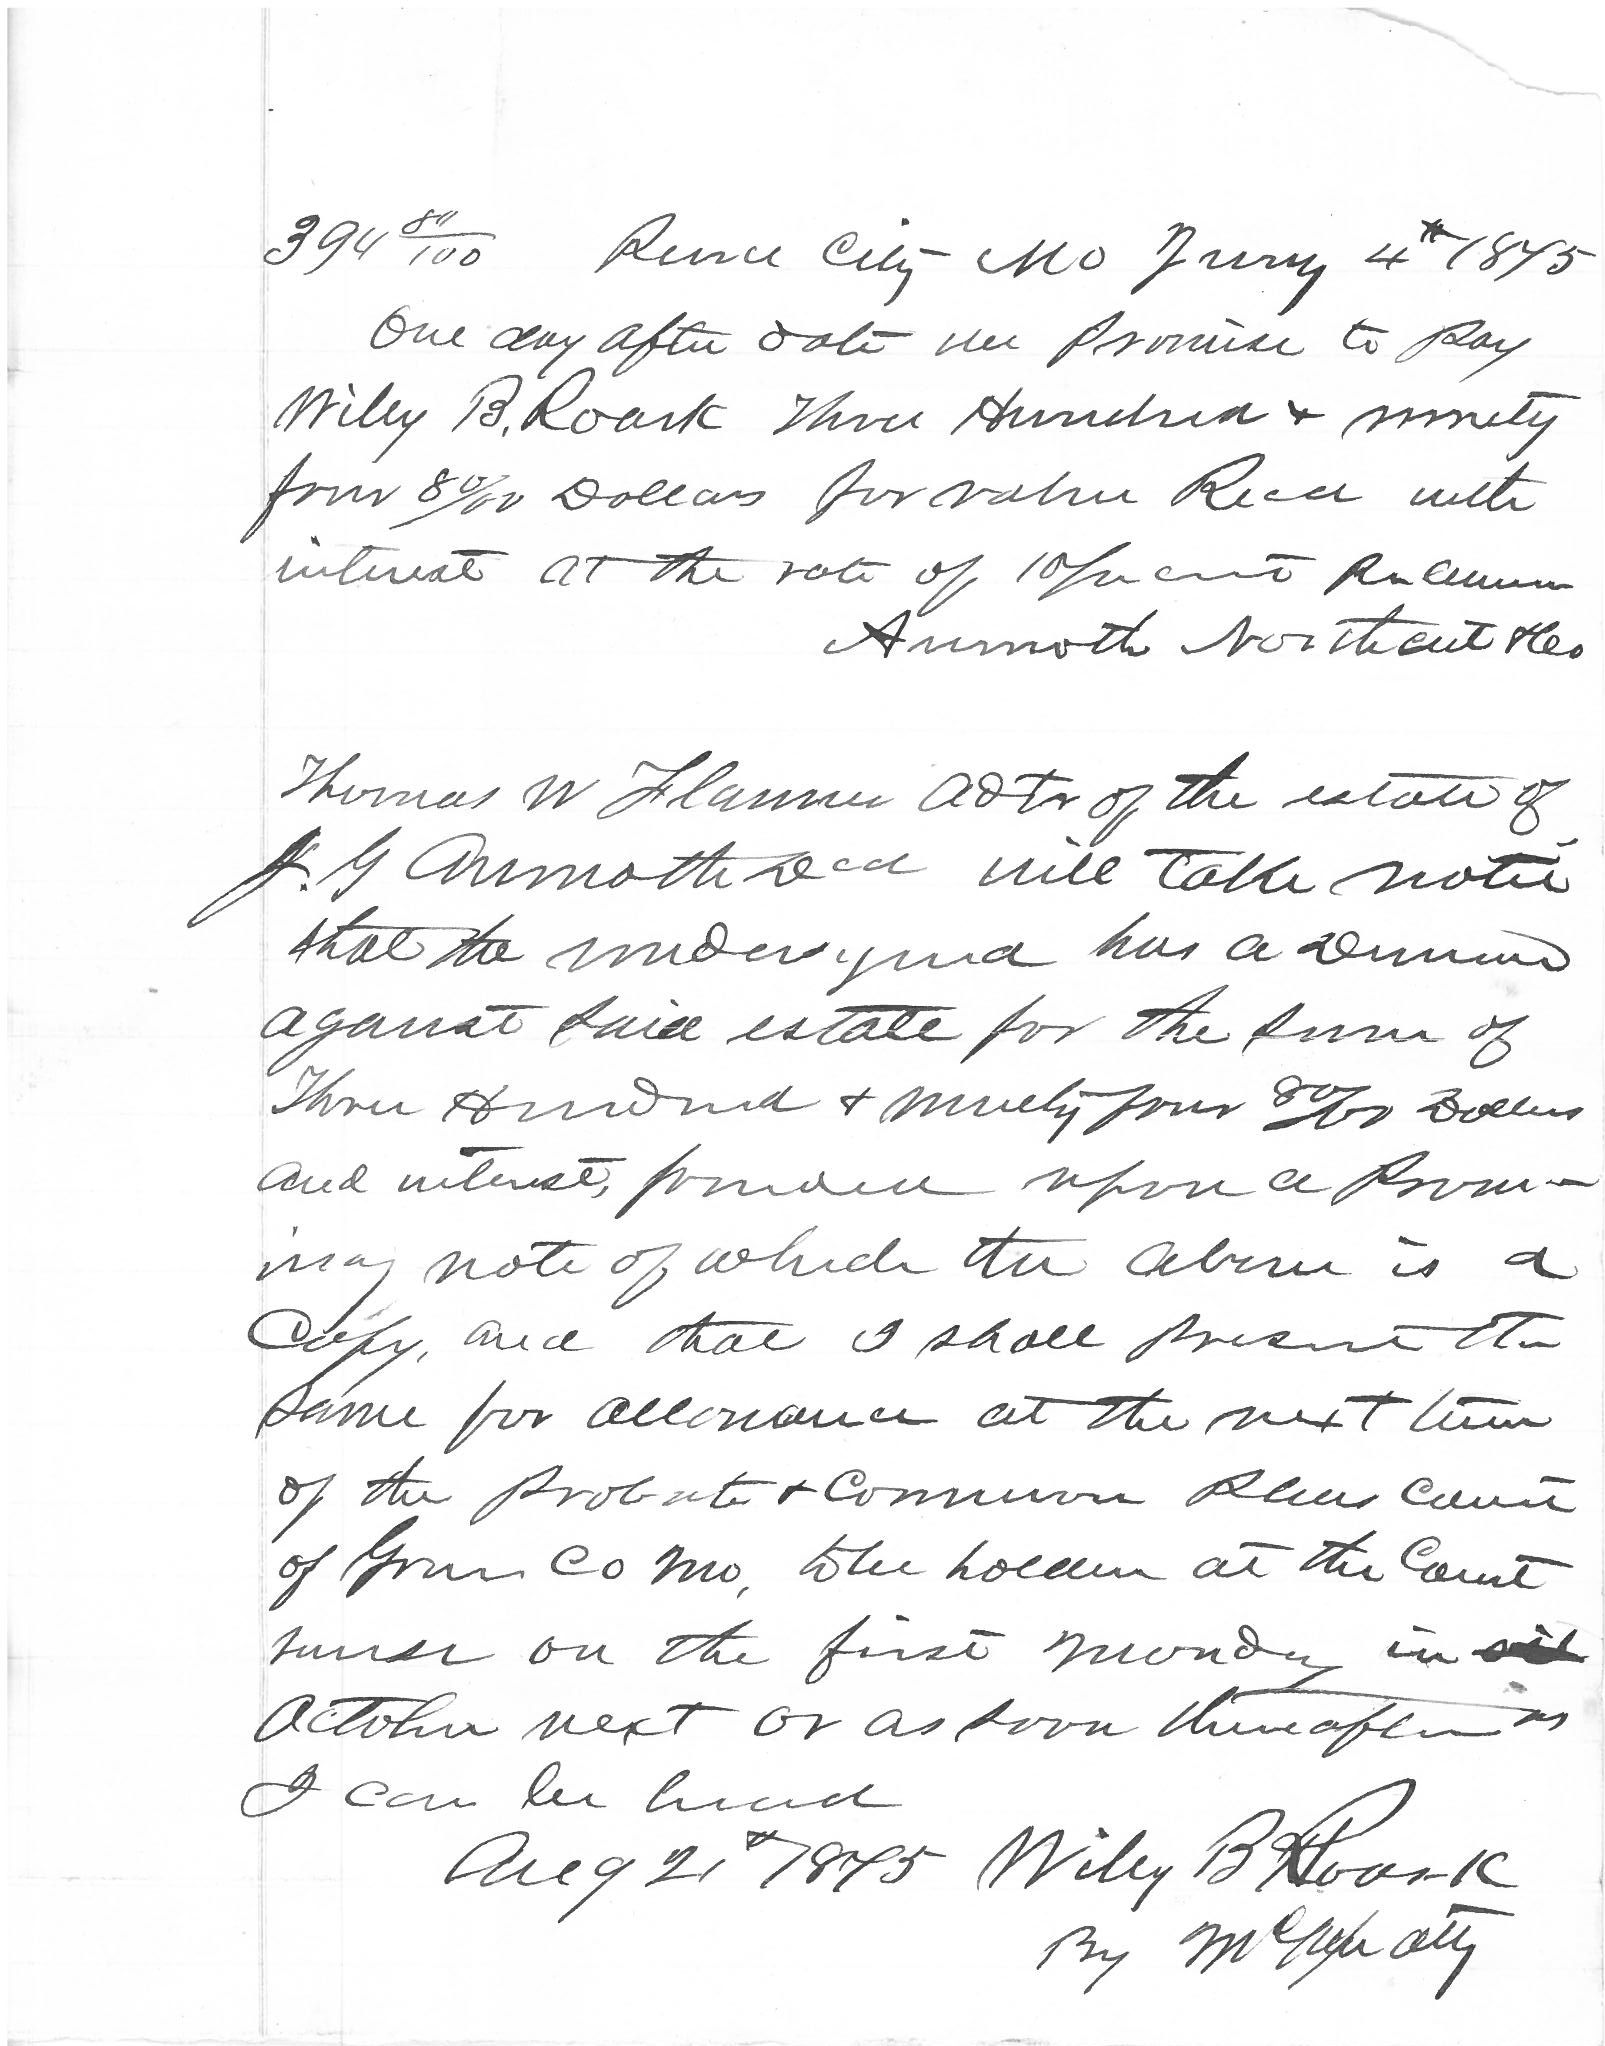 394 80/100 Peirce City Mo Jany 4th 1875
One day after date we promise to pay
Wiley B. Roark Three Hundred & ninety
four 80/100 Dollars for value Recd with
interest at the rate of 10 per cent per annum
Northcut & Co
Thomas W Flanner Adtr of the estate of
J. G decd will take notice
that the undersigned has a demand
against said estate for the sum of
Three Hundred & ninety four 80/100 Dollars
and interest, founded upon a Prom-
isory note of which the above is a
Copy, and that I shall present the
same for allowance at the next term
of the Probate & Common Pleas Court
of Green Co Mo, to be holden at the Court
house on the first Monday in
October next or as soon thereafter as
I can be heard
Aug 21st 1875 Wiley B Roark
By atty